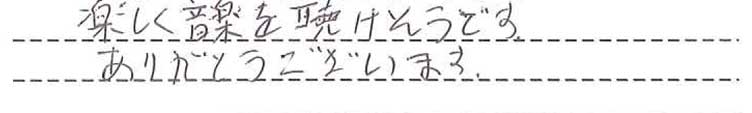 楽しく音楽を聴けそうです。
ありがとうございます。